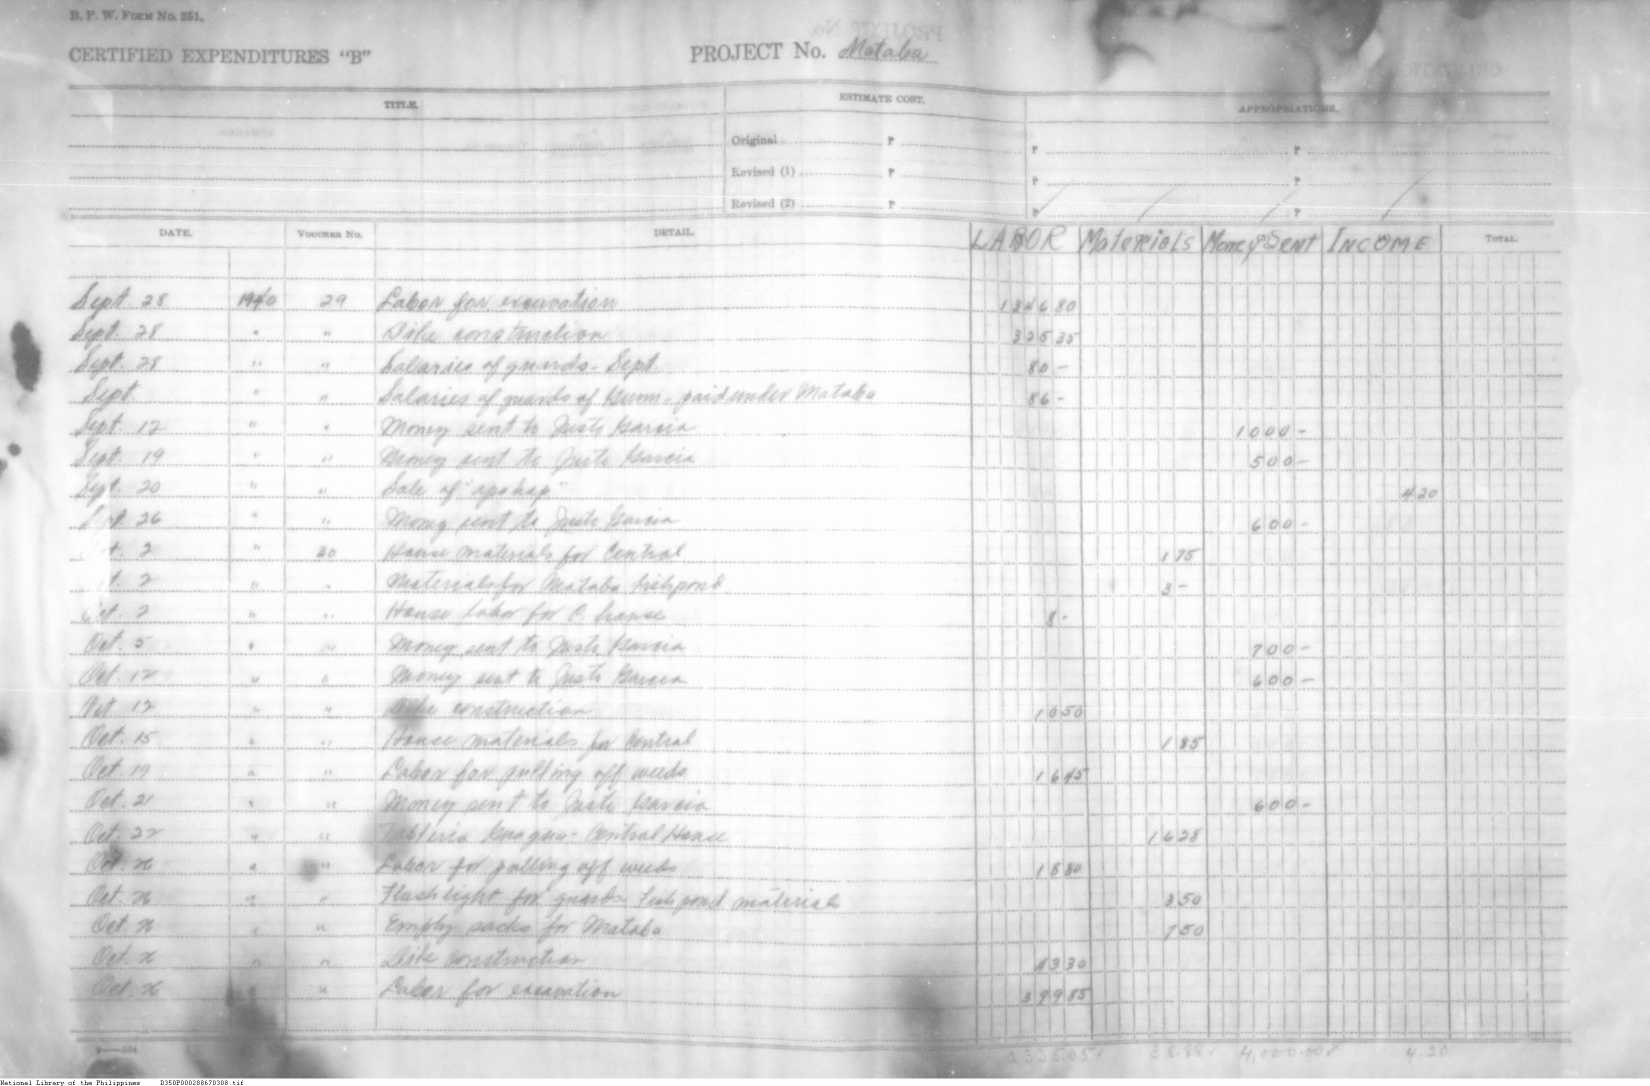 B. P. W. FORM No. 251.
CERTIFIED EXPENDITURES “B” PROJECT No. Mataba
TITLE. ESTIMATE COST. APPROPRIATIONS.
Original P P P
Revised (1) P P P
Revised (2) P P P
DATE. VOUCHER No. DETAIL. LABOR Materials Money Sent INCOME TOTAL.
Sept. 28 1940 29 Labor for excavation 1346 80
Sept. 28 " " Dike construction 325 35
Sept. 28 " " Salaries of guards - Sept 80 -
Sept. " " Salaries of guards of - paid under Mataba 86 -
Sept. 12 " " Money sent to Justo Garcia 1000 -
Sept. 19 " " Money sent to Justo Garcia 500 -
Sept. 20 " " Sale of "apahap" 4 20
Sept. 26 " " Money sent to Justo Garcia 600 -
t. 2 " 30 House materials for Central 1 75
t. 2 " " Materials for Mataba fishpond 3 -
Oct. 2 " " House labor for C. house 8 -
Oct. 5 " " Money sent to Justo Garcia 700 -
Oct. 12 " " Money sent to Justo Garcia 600 -
Oct 12 " " Dike construction 10 50
Oct. 15 " " House materials for Central 1 85
Oct. 19 " " Labor for pulling off weeds 16 45
Oct. 21 " " Money sent to Justo Garcia 600 -
Oct. 22 " " Central House 16 28
Oct. 26 " " Labor for pulling off weeds 18 80
Oct. 26 " " Flashlight for guards fishpond materials 3 50
Oct 26 " " Empty sacks for Mataba 7 50
Oct. 26 " " Dike construction 43 30
Oct. 26 " " Labor for excavation 399 85
4,000.00 4.20
National Library of the Philippines D350P000288670308.tif